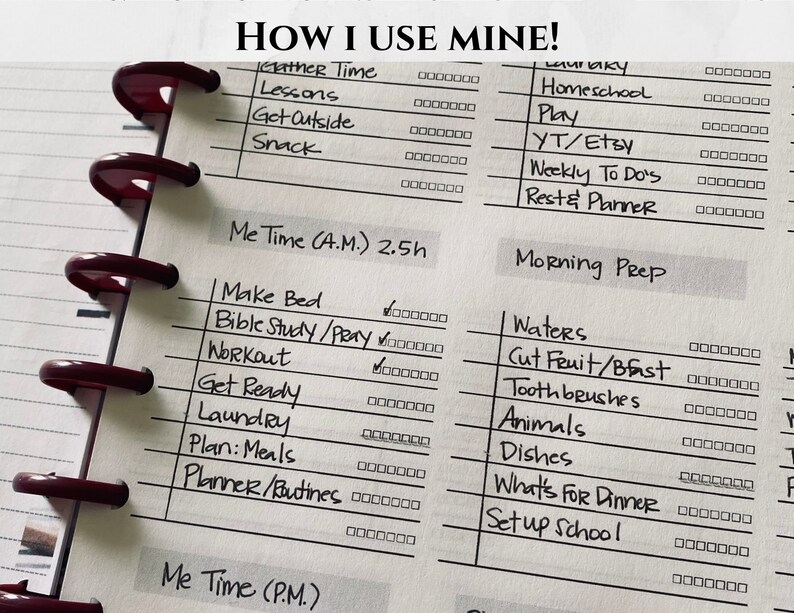 How I use mine!
Gather Time
Lessons
Get Outside
Snack
Laundry
Homeschool
Play
YT/Etsy
Weekly To Do's
Rest & Planner
Me Time (A.M.) 2.5h
Make Bed
Bible Study/Pray
Workout
Get Ready
Laundry
Plan: Meals
Planner/Routines
Morning Prep
Waters
Cut Fruit/Bfast
Toothbrushes
Animals
Dishes
What's For Dinner
Set up School
Me Time (P.M.)